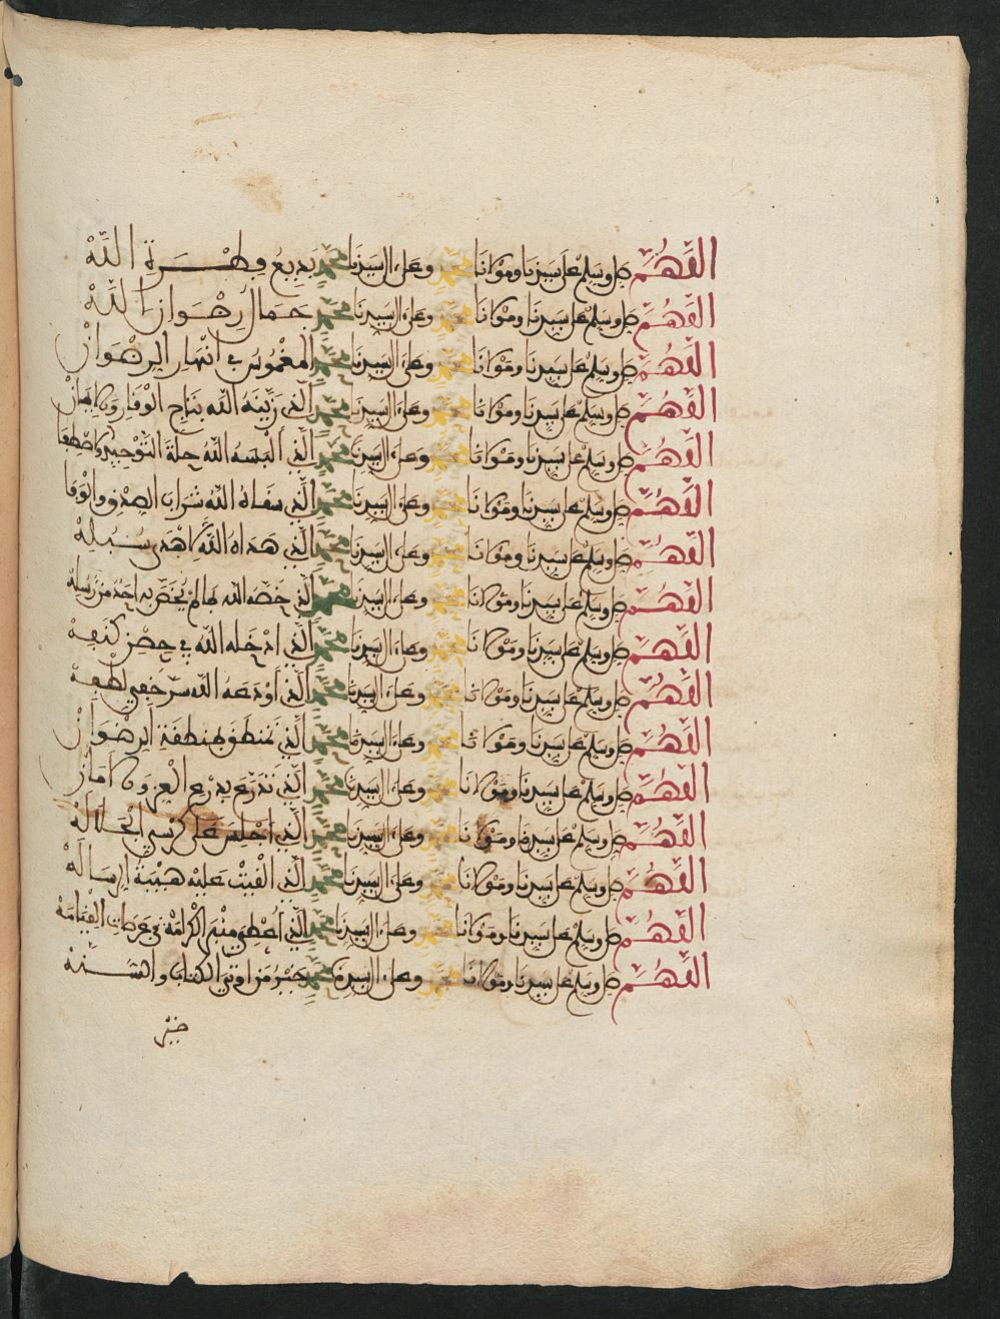 اللَّهُمَّ صل وسلم على سيدنا ومولانا محمد وعلى ال سيدنا محمد بَدِيعِ فِطْرَةِ اللَّهْ
اللَّهُمَّ صل وسلم على سيدنا ومولانا محمد وعلى ال سيدنا محمد جَمَالِ رِضْوَانِ اللَّهْ
اللَّهُمَّ صل وسلم على سيدنا ومولانا محمد وعلى ال سيدنا محمد المَغْمُوسِ في انْهَارِ الرِضْوَانْ
اللَّهُمَّ صل وسلم على سيدنا ومولانا محمد وعلى ال سيدنا محمد الَّذِي زَيَّنَهُ اللَّهُ بِتَاجِ الْوَقَارِ والايمَانْ
اللَّهُمَّ صل وسلم على سيدنا ومولانا محمد وعلى ال سيدنا محمد الَّذِي أَلْبَسَهُ اللَّهُ حُلَةَ التَّوْحِيدِ والاصْطِفَا
اللَّهُمَّ صل وسلم على سيدنا ومولانا محمد وعلى ال سيدنا محمد الَّذِي سَقَاهُ اللَّهُ شَرَابَ الصِدْقِ والْوَفَا
اللَّهُمَّ صل وسلم على سيدنا ومولانا محمد وعلى ال سيدنا محمد الَّذِي هَدَاهُ اللَّهُ لاهْدَى سُبُلِهْ
اللَّهُمَّ صل وسلم على سيدنا ومولانا محمد وعلى ال سيدنا محمد الَّذِي خَصَّهُ اللَّه بِمَا لَمْ يَخُصَّ بِهِ احَدًا مِنْ رُسُلِهْ
اللَّهُمَّ صل وسلم على سيدنا ومولانا محمد وعلى ال سيدنا محمد الَّذِي ادْخَلَهُ اللَّه في حِصْنِ كَنَفِهْ
اللَّهُمَّ صل وسلم على سيدنا ومولانا محمد وعلى ال سيدنا محمد الَّذِي أَوْدَعَهُ اللَّه سِرَّ خَفِيِّ لُطْفِهْ
اللَّهُمَّ صل وسلم على سيدنا ومولانا محمد وعلى ال سيدنا محمد الَّذِي تَمَنْطَقَ بِمِنْطَقَةِ الرِضْوَانْ
اللَّهُمَّ صل وسلم على سيدنا ومولانا محمد وعلى ال سيدنا محمد الَّذِي تَدَرَّعَ بِدِرْعِ الْعِزِ والامَانْ
اللَّهُمَّ صل وسلم على سيدنا ومولانا محمد وعلى ال سيدنا محمد الَّذِي أُجْلِسَ عَلَى كُرْسِي الْجَلالَهْ
اللَّهُمَّ صل وسلم على سيدنا ومولانا محمد وعلى ال سيدنا محمد الَّذِي الْقِيَتْ عَلَيْهِ هَيْبَةُ الرِسَالَهْ
اللَّهُمَّ صل وسلم على سيدنا ومولانا محمد وعلى ال سيدنا محمد الَّذِي اُعْطِيَ مِنْبَرَ الْكَرَامَةْ في عَرَصَاتِ الْقِيَامَهْ
اللَّهُمَّ صل وسلم على سيدنا ومولانا محمد وعلى ال سيدنا محمد خَيْرُ مَنْ اوتِيَ الكتاب و
خَيْر